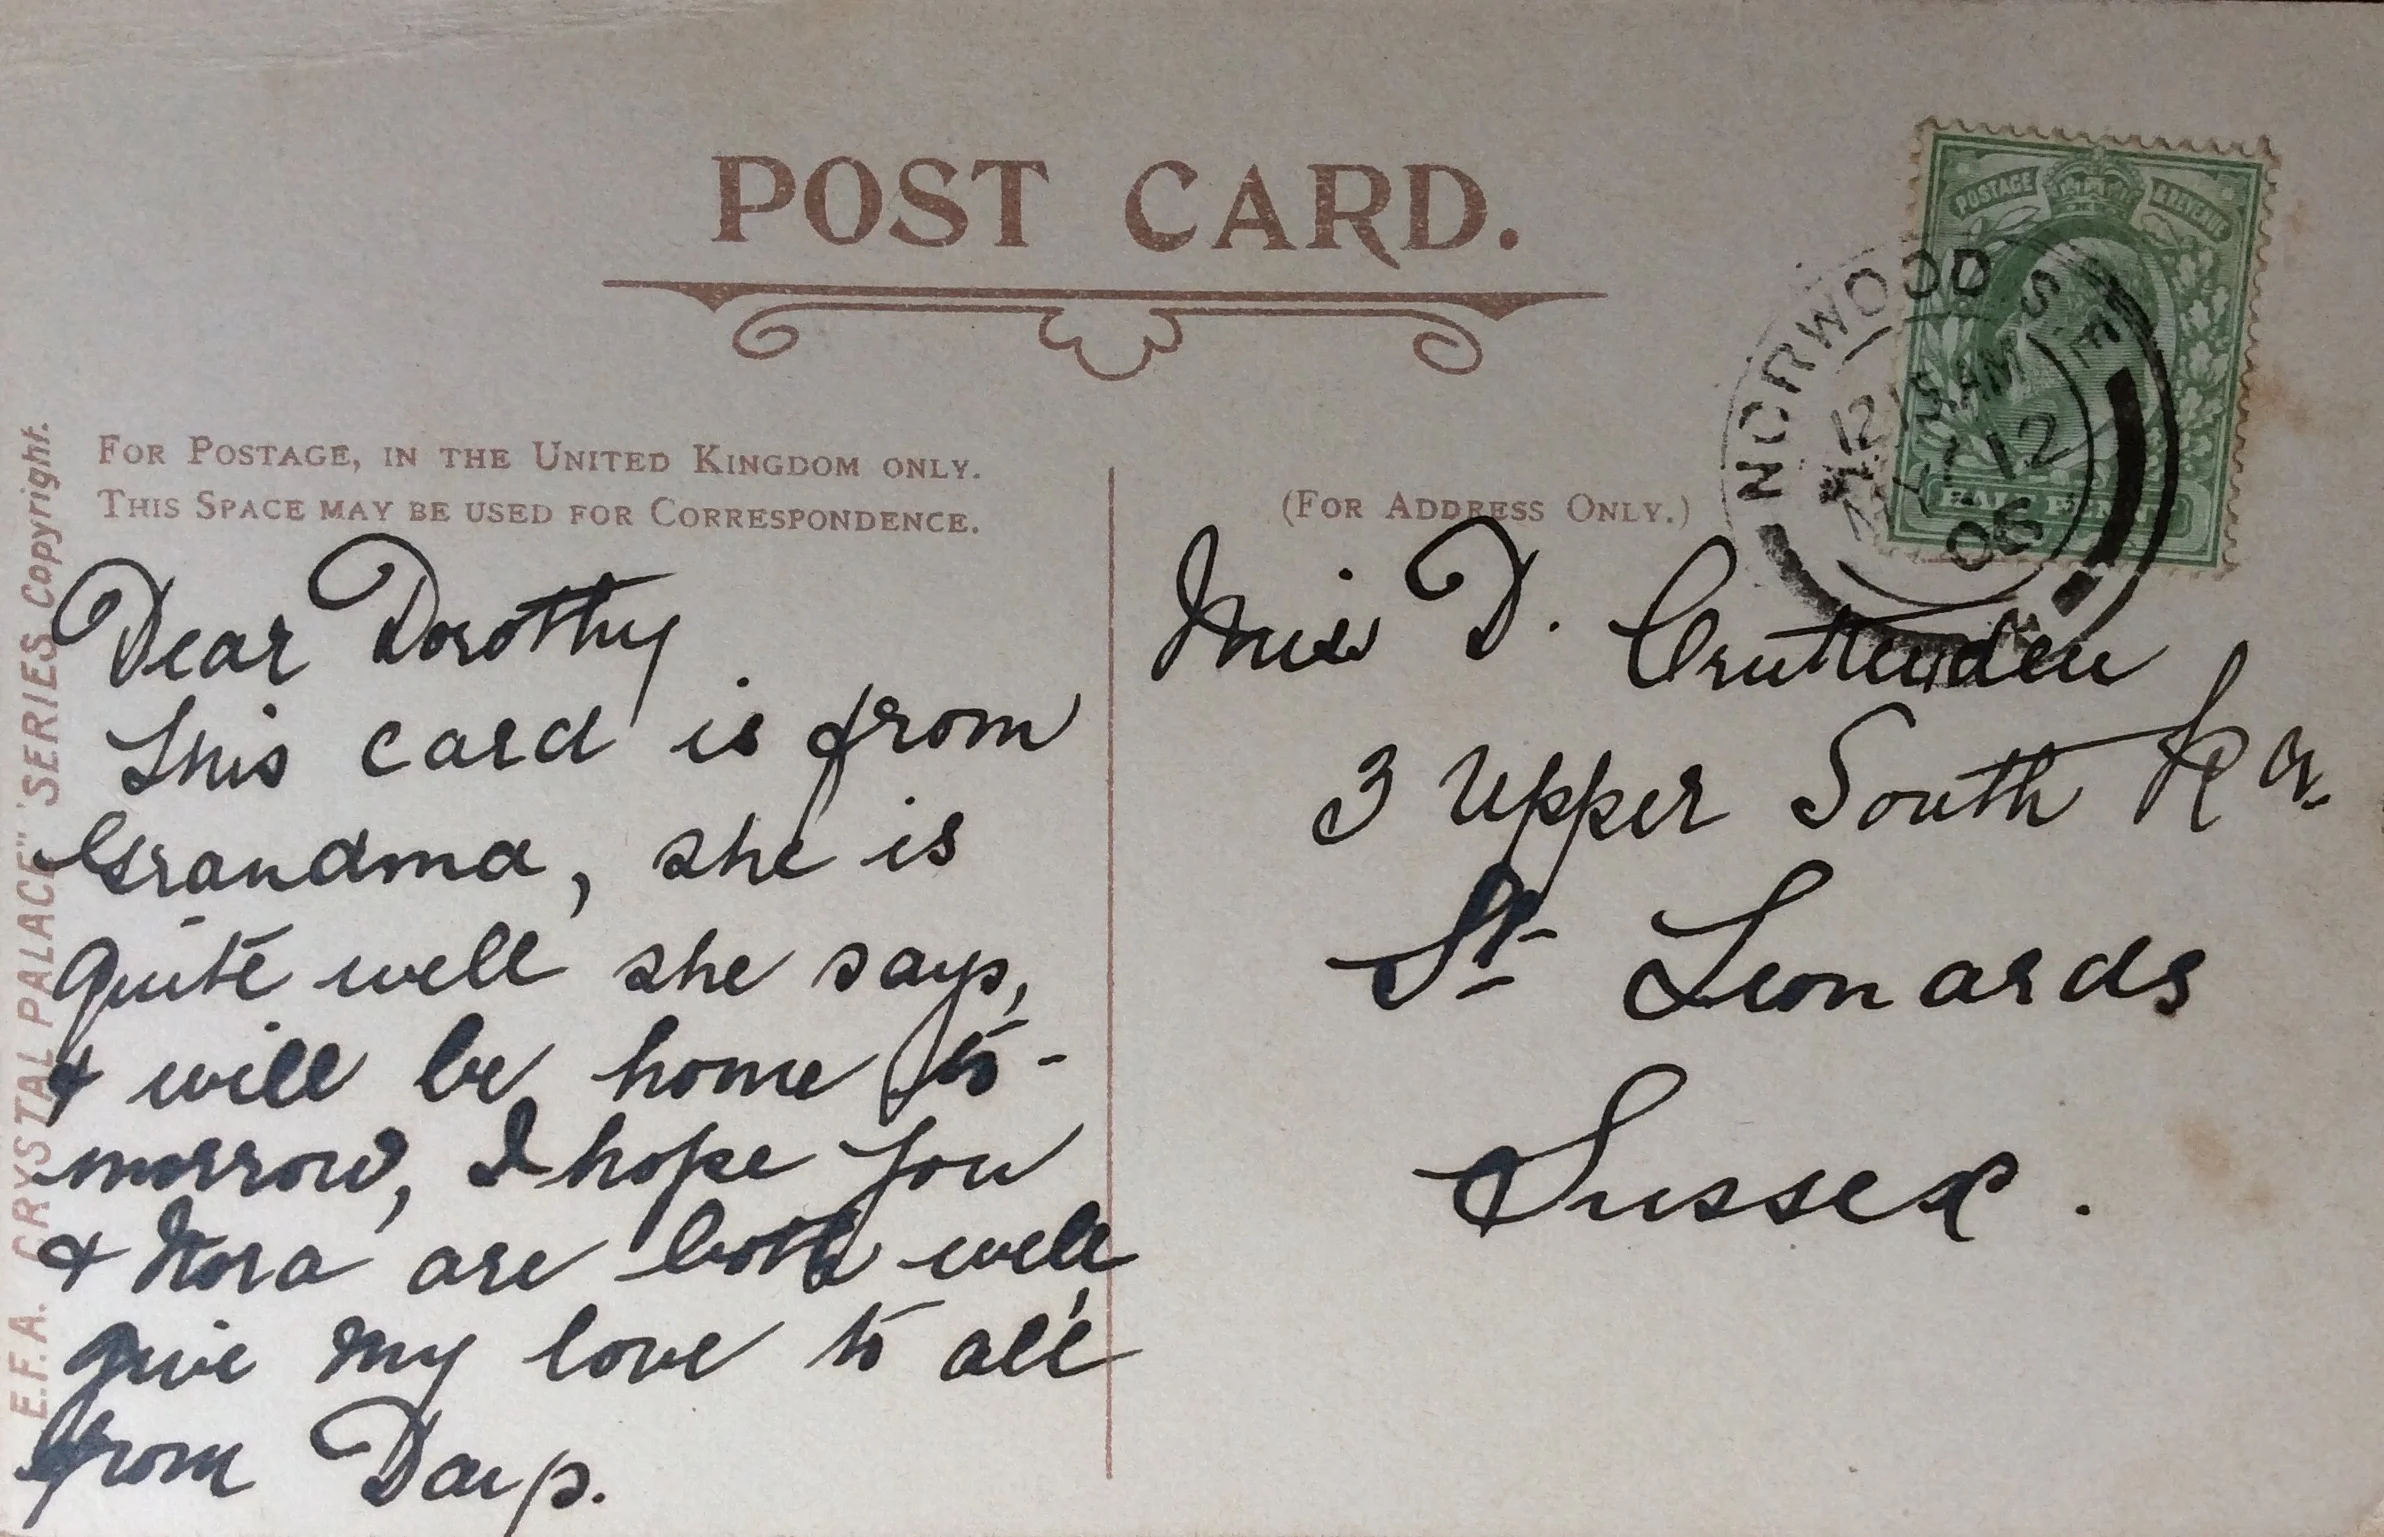 POST CARD.
FOR POSTAGE, IN THE UNITED KINGDOM ONLY.
THIS SPACE MAY BE USED FOR CORRESPONDENCE.
(FOR ADDRESS ONLY.)
E.F.A. CRYSTAL PALACE" SERIES Copyright.
Dear Dorothy
This card is from
Grandma, she is
quite well she says,
& will be home to-
morrow, I hope you
& Nora are both well,
give my love to all
from
Miss D. Cruttenden
3 Upper South Rd.
St Leonards
Sussex.
POSTAGE REVENUE
HALF PENNY
NORWOOD S.E
12
12
06